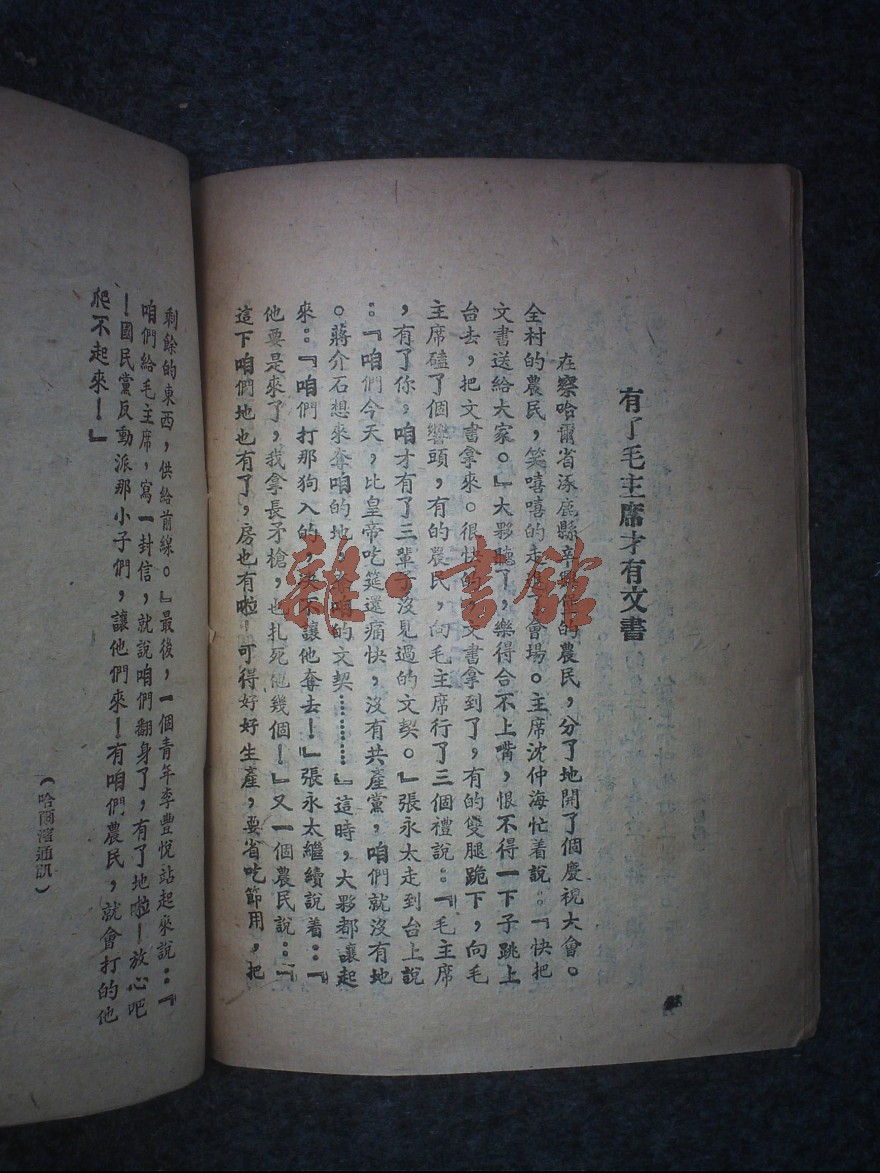 有了毛主席才有文書
在察哈爾省涿鹿縣辛 的農民，分了地開了個慶祝大會。
全村的農民，笑嘻嘻的走 會場。主席沈仲海忙着說：『快把
文書送給大家。』大夥聽了，樂得合不上嘴，恨不得一下子跳上
台去，把文書拿來。很快的，文書拿到了，有的雙腿跪下，向毛
主席磕了個響頭，有的農民，向毛主席行了三個禮說：『毛主席
，有了你，咱才有了三輩子沒見過的文契。』張永太走到台上說
：『咱們今天，比皇帝吃筵還痛快，沒有共產黨，咱們就沒有地
。蔣介石想來奪咱的地， 咱的文契…………』這時，大夥都讓起
來：『咱們打那狗入的，决不讓他奪去！』張永太繼續說着：『
他要是來了，我拿長矛槍，也扎死他幾個！』又一個農民說：『
這下咱們地也有了，房也有啦！可得好好生產，要省吃節用，把
剩餘的東西，供給前線。』最後，一個青年李豐悅站起來說：『
咱們給毛主席，寫一封信，就說咱們翻身了，有了地啦！放心吧
！國民黨反動派那小子們，讓他們來！有咱們農民，就會打的他
爬不起來！』
（哈爾濱通訊）
雜·書館